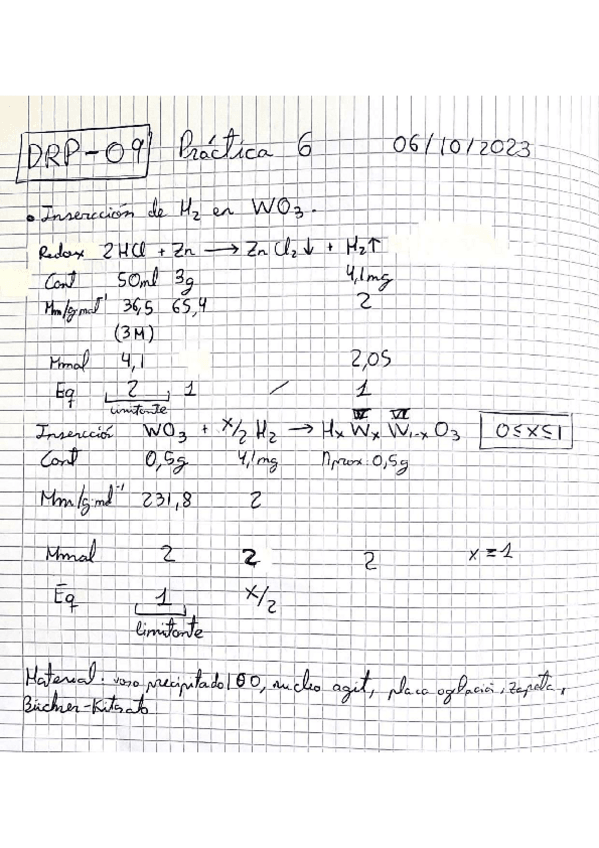 DRP-09 Práctica 6 06/10/2023
• Insercción de H₂ en WO₃.
Redox 2HCl + Zn → ZnCl₂↓ + H₂↑
Cant 50ml 3g 4,1mg
Mm/g·mol⁻¹ 36,5 65,4 2
(3M)
Mmol 4,1 2,05
Eq 2 1 / 1
limitante
Insercción WO₃ + x/2 H₂ → HₓWⱽₓWⱽᴵ₁₋ₓO₃ 0≤x≤1
Cant 0,5g 4,1mg Aprox: 0,5g
Mm/g·mol⁻¹ 231,8 2
Mmol 2 2 2 x=1
Eq 1 x/2
limitante
Material: vaso precipitado 100, nucleo agit, placa , zapata,
Büchner-Kitasato